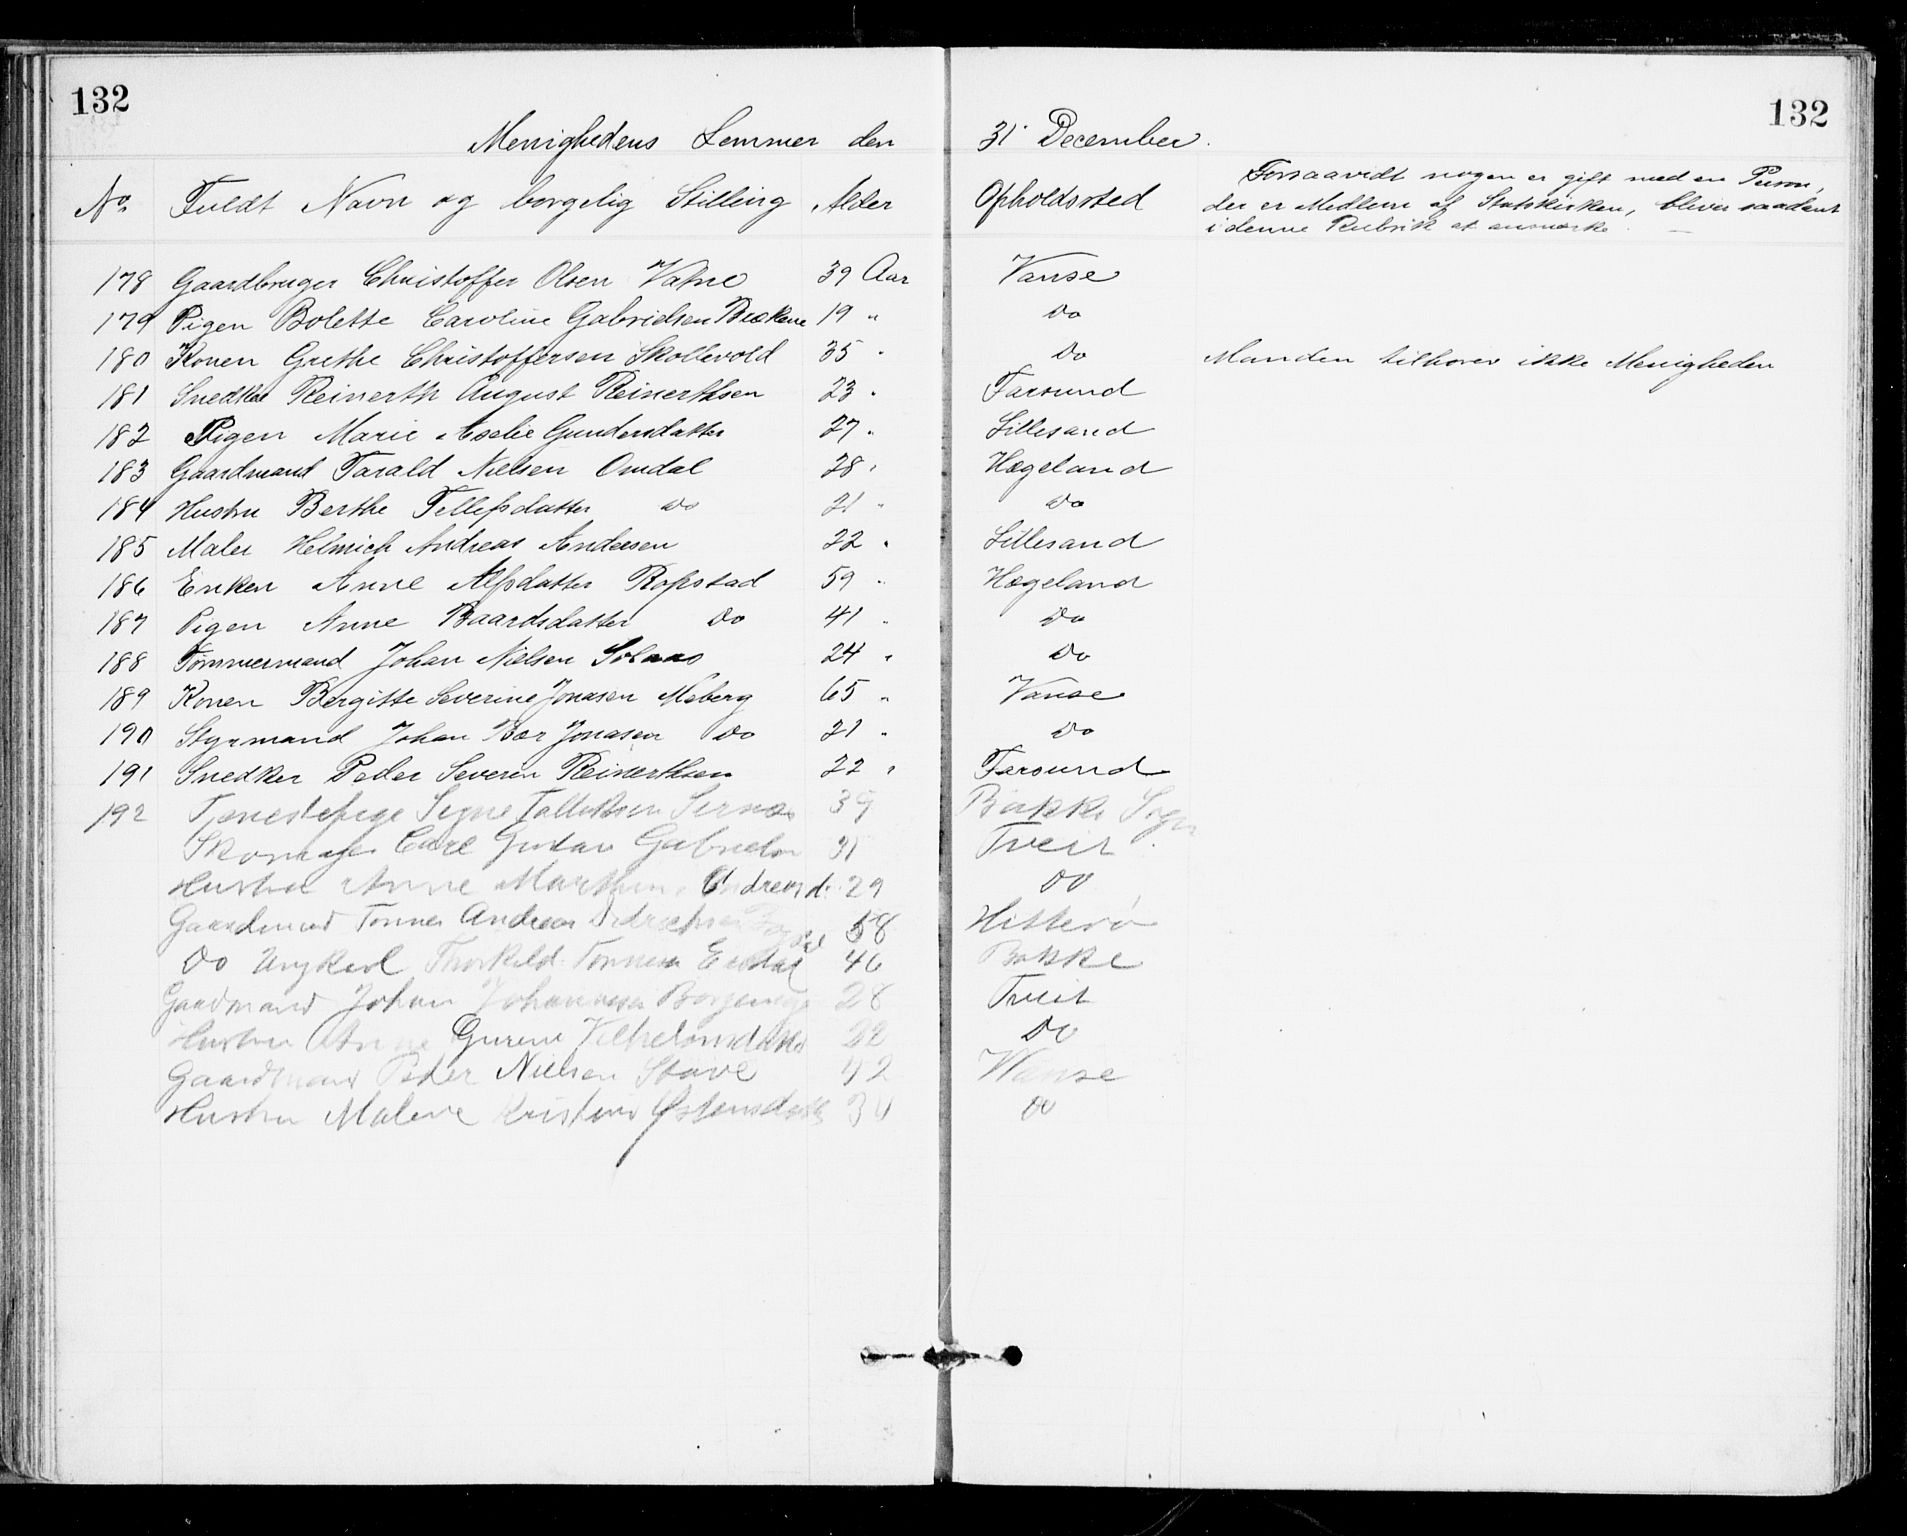 132 132
Menighedens Lemmer den 31 December.
No. Fuldt Navn og borgelig Stilling Alder Opholdssted Forsaavidt nogen er gift med en Person,
der er Medlem af Statskirken, bliver saadant
i denne Rubrik at anmærke. —
178 Gaardbruger Christoffer Olsen Vatne 39 Aar Vanse
179 Pigen Bolette Caroline Gabrielsen Brækene 19 " Do
180 Konen Grethe Christoffersen Skollevold 35 " Do Manden tilhører ikke Menigheden
181 Snedker Reinerth August Reinerthsen 23 " Farsund
182 Pigen Marie Aselie Gundersdatter 27 " Lillesand
183 Gaardmand Tarald Nielsen Omdal 28 " Hægeland
184 Hustru Berthe Tellefsdatter Do 21 " Do
185 Maler Helmich Andreas Andersen 22 " Lillesand
186 Enken Anne Alfsdatter Ropstad 59 " Hægeland
187 Pigen Anne Baardsdatter Do 41 " Do
188 Tømmermand Johan Nielsen Solaas 24 " Do
189 Konen Bergitte Severine Jonasen Meberg 65 " Vanse
190 Styrmand Johan Bær Jonasen Do 21 " Do
191 Snedker Peder Severin Reinerthsen 22 " Farsund
192 Tjenestepige Signe Tallaksen 39 Bakke Sogn
Skomager Carl Gustav Gabrielsen 31 Tveit
Hustru Anne Marthine Andreasd. 29 Do
Gaardmand Tønnes Andreas 58 Hitterø
Do Ungkarl Thorkild Tønnesen 46 Bakke
Gaardmand Johan Johannesen 28 Tveit
Hustru Anne Gurine Vilhelmsdatter 22 Do
Gaardmand Peder Nielsen Stave 42 Wanse
Hustru Malene Kristine Østensdatter Do